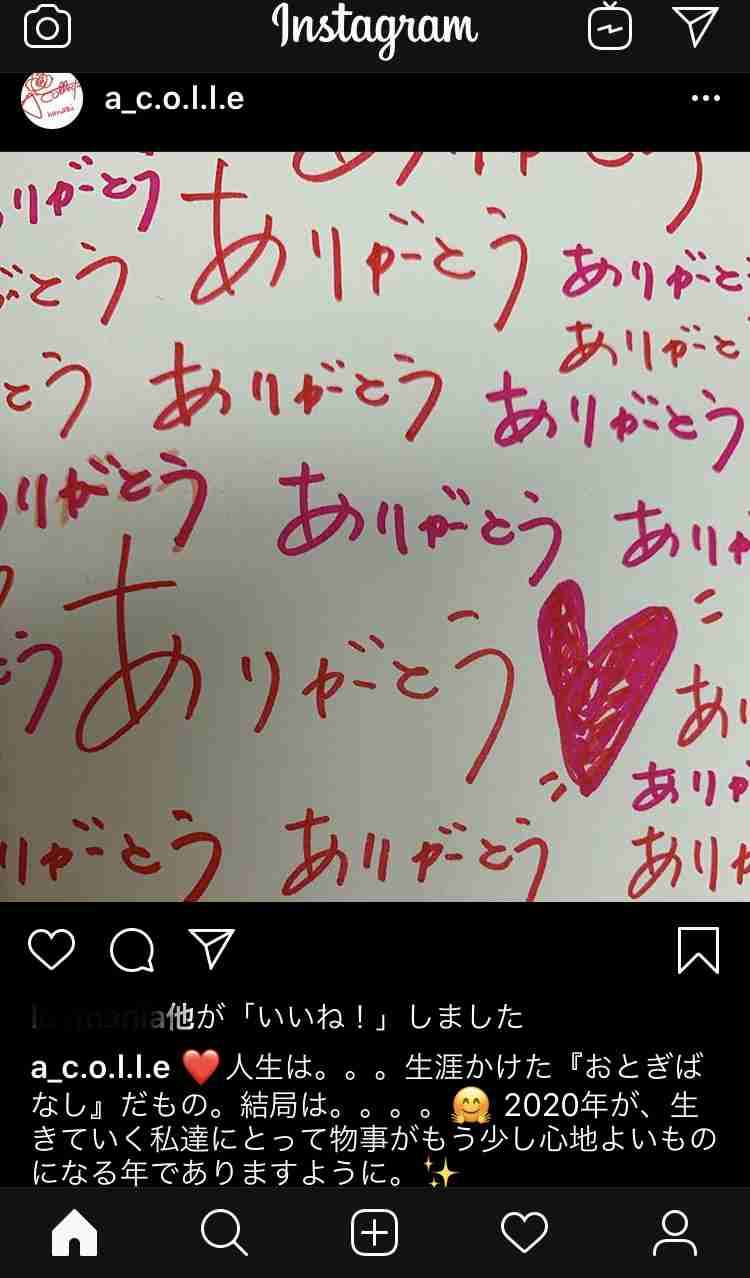 Instagram
a_c.o.l.l.e
ありがとう
ありがとう
ありがと
がとう
ありがと
とう
ありがとう
ありがとう
りがとう
ありがとう
ありが
う
ありがとう
あり
ありが
りがとう
ありがとう
ありが
他が「いいね！」しました
a_c.o.l.l.e ❤️人生は。。。生涯かけた『おとぎば
なし』だもの。結局は。。。。🤗 2020年が、生
きていく私達にとって物事がもう少し心地よいもの
になる年でありますように。✨